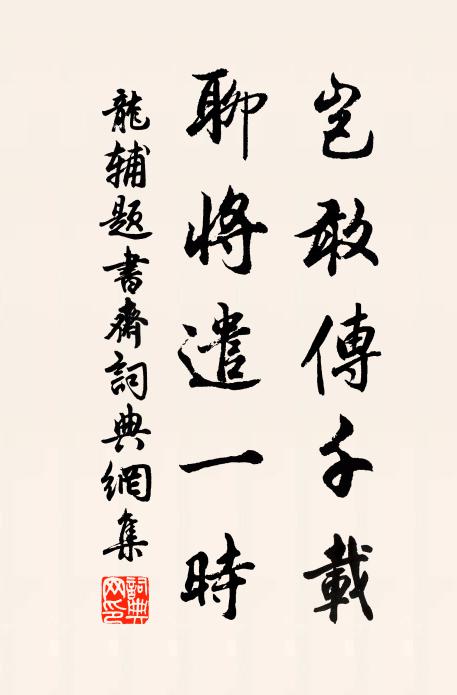 豈敢傳千載
聊將遣一時
龍輔題書齋詞典網集
詞典
網印